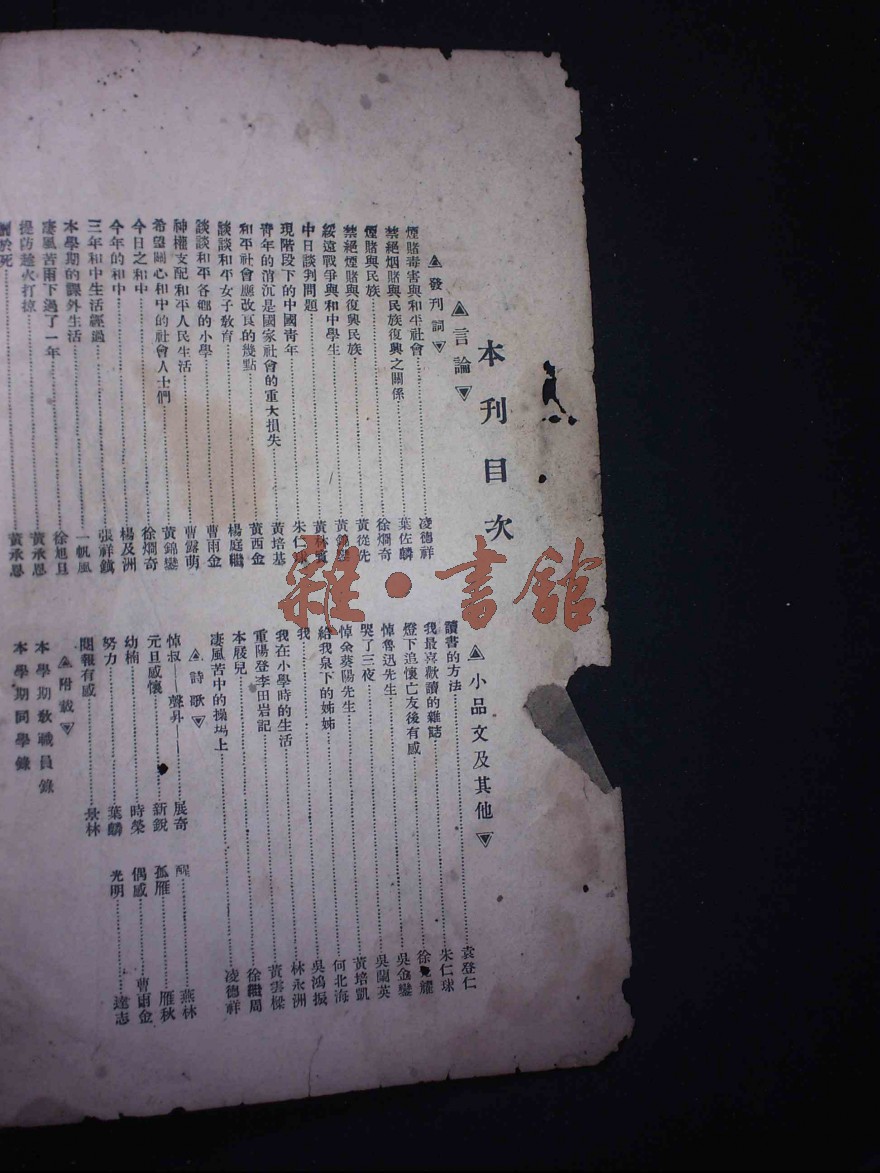 本刊目次
▲言論▼
▲發刊詞▼
煙賭毒害與和平社會……凌德祥
禁絕烟賭與民族復興之關係……葉佐麟
煙賭與民族……徐爛奇
禁絕煙賭與復興民族……黃從先
綏遠戰爭與和中學生……黃錦鑾
中日談判問題……黃林賓
現階段下的中國靑年……朱仁球
靑年的消沉是國家社會的重大損失……黃培基
和平社會應改良的幾點……黃西金
談談和平女子敎育……楊庭繼
談談和平各鄉的小學……曹雨金
神權支配和平人民生活……曹露萌
希望關心和中的社會人士們……黃錦鑾
今日之和中……徐爛奇
今年的和中……楊及洲
三年和中生活經過……張祥鎮
本學期的課外生活……一帆風
凄風苦雨下過了一年……徐旭旦
提防趁火打掠……黃承恩
於死……黃承恩
▲小品文及其他▼
讀書的方法……袁登仁
我最喜歡讀的雜誌……朱仁球
燈下追懷亡友後有感……徐耀
悼魯迅先生……吳金鑾
哭了三夜……吳蘭英
悼余葵陽先生……黃培凱
給我泉下的姊姊……何北海
我……吳鴻振
我在小學時的生活……林永洲
重陽登李田岩記……黃雲樑
本股兒……徐繼周
凄風苦中的操場上……凌德祥
▲詩歌▼
悼叔——聲昇——……展奇
醒……燕林
元旦感懷……新銳
孤雁……雁秋
幼楠……時榮
偶感……曹雨金
努力……葉麟
光明……達志
閱報有感……景林
▲附載▼
本學期敎職員錄
本學期同學錄
雜·書館